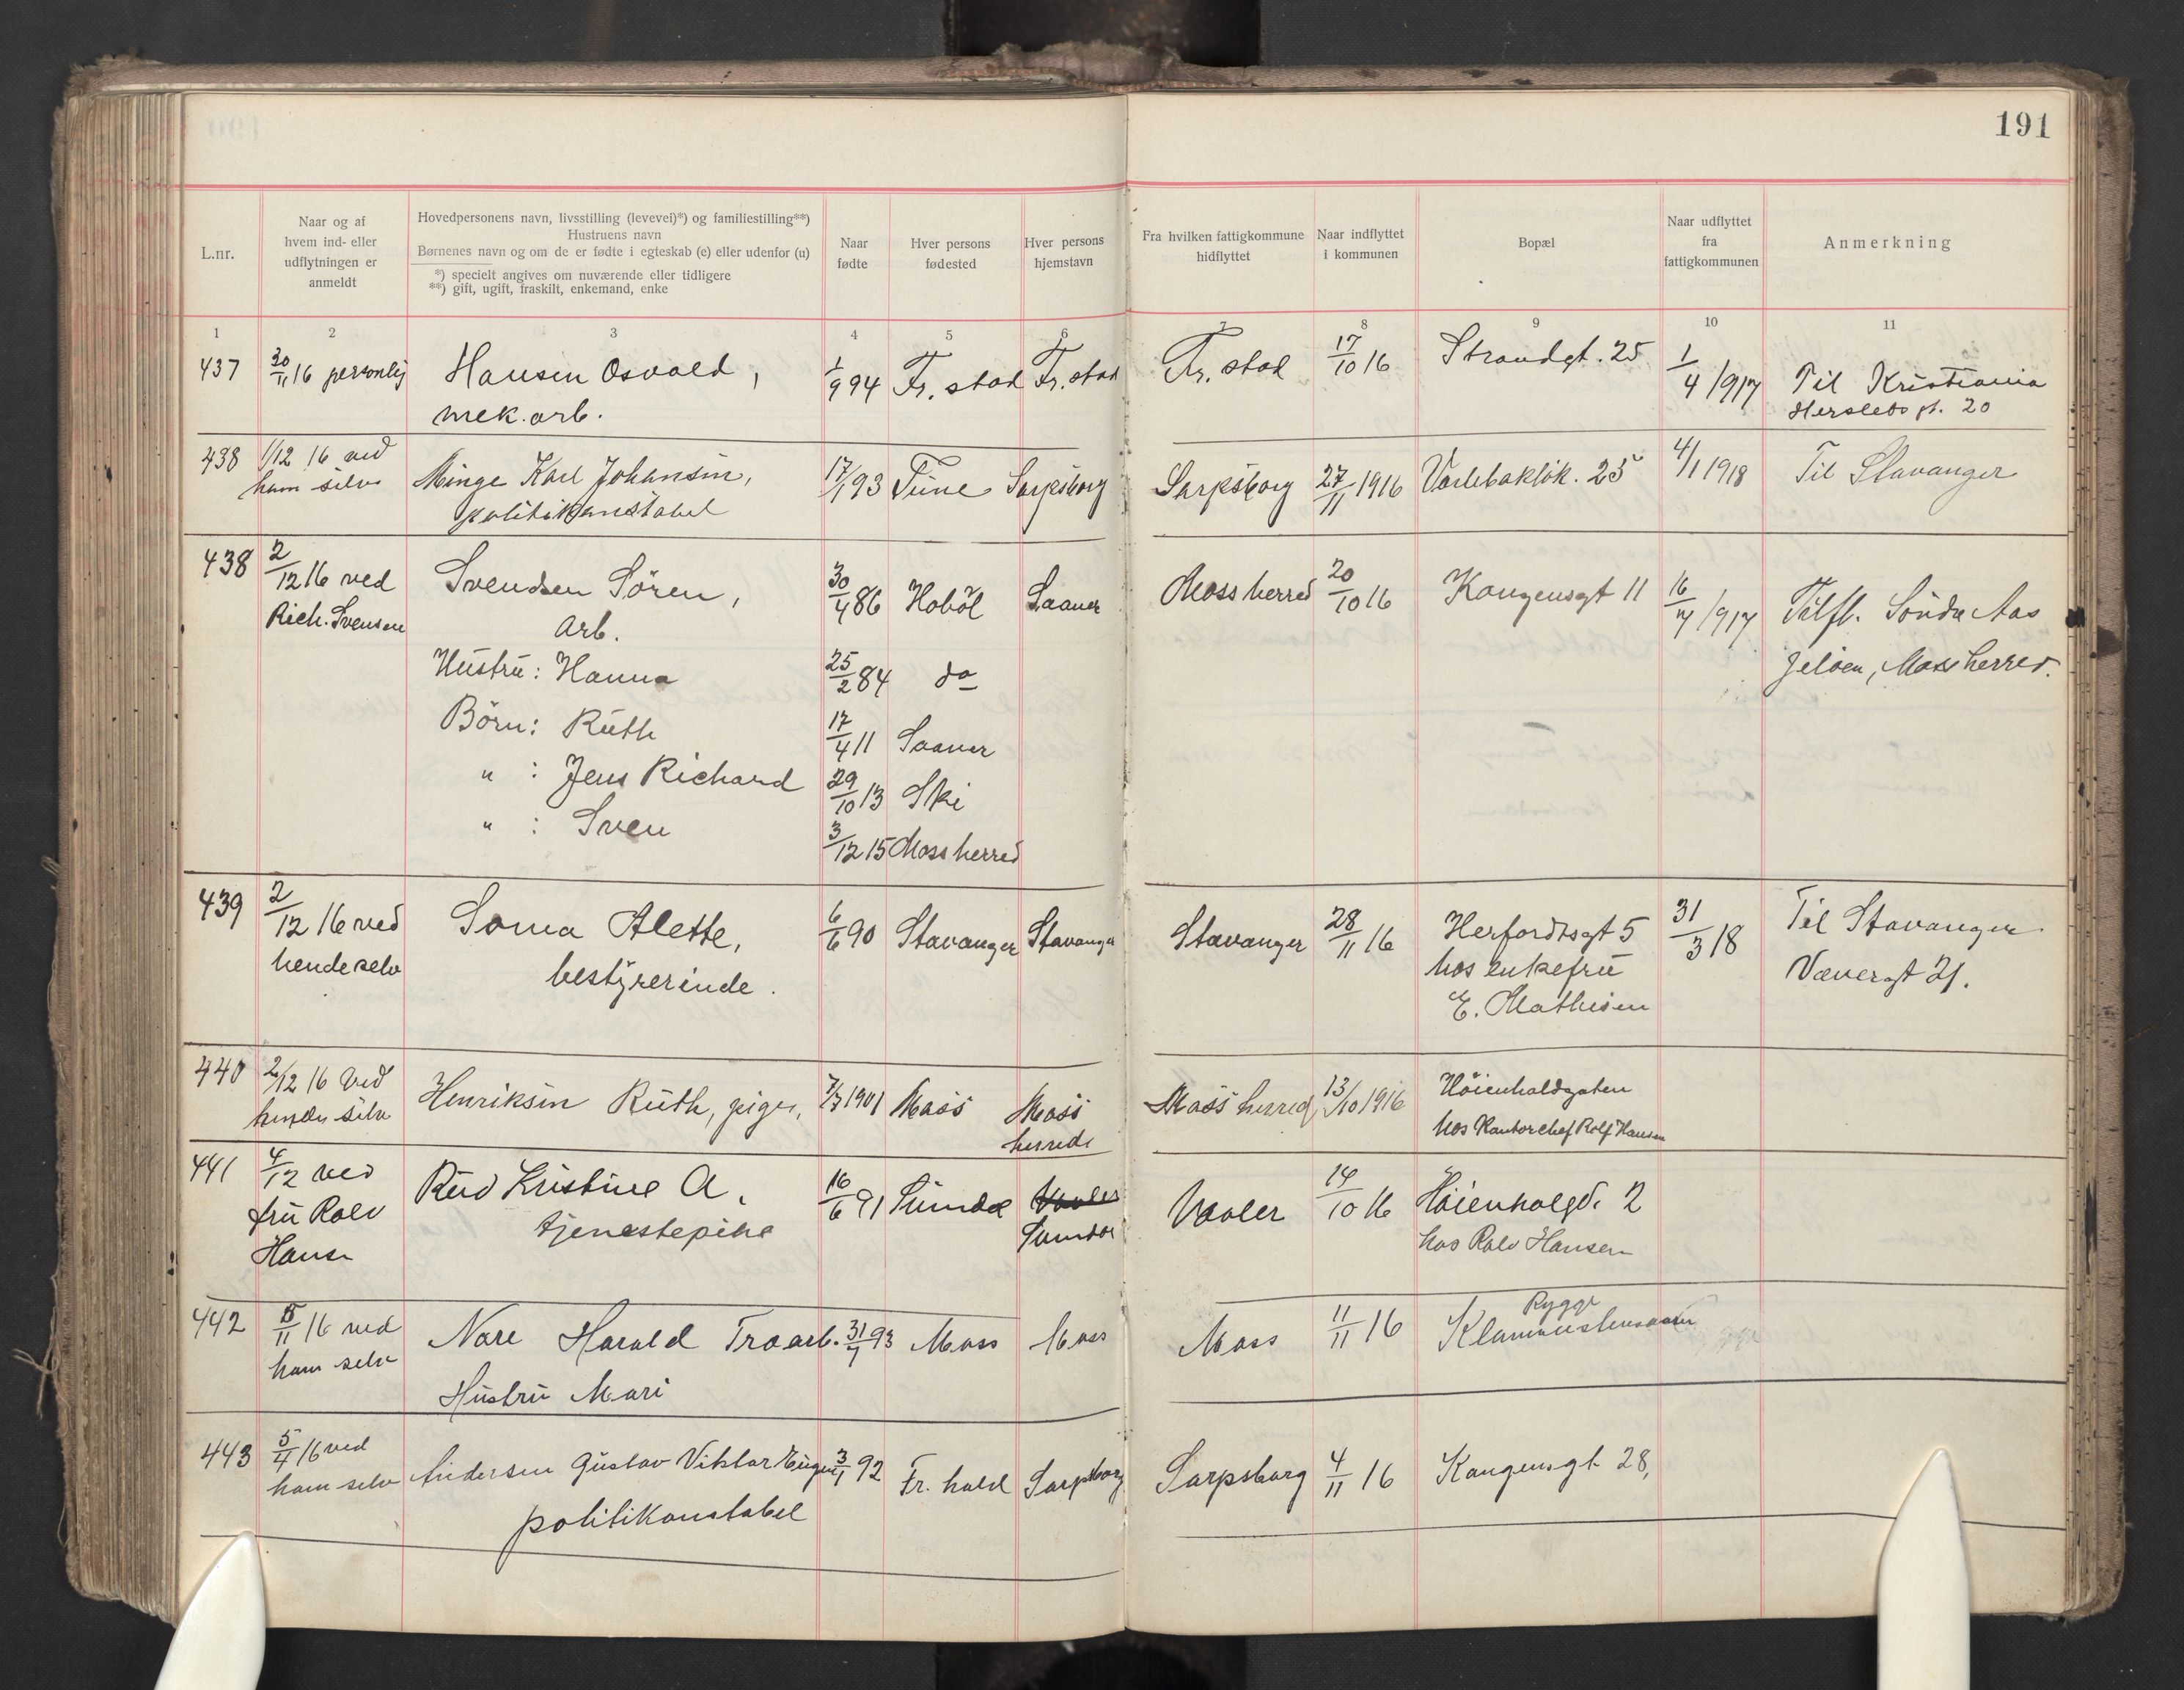 191
L.nr.
Naar og af
hvem ind- eller
udflytningen er
anmeldt
Hovedpersonens navn, livsstilling (levevei)*) og familiestilling**)
Hustruens navn
Børnenes navn og om de er fødte i egteskab (e) eller udenfor (u)
*) specielt angives om nuværende eller tidligere
**) gift, ugift, fraskilt, enkemand, enke
Naar
fødte
Hver persons
fødested
Hver persons
hjemstavn
Fra hvilken fattigkommune
hidflyttet
Naar indflyttet
i kommunen
Bopæl
Naar udflyttet
fra
fattigkommunen
Anmerkning
1 2 3 4 5 6 7 8 9 10 11
437 30/11 16 personlig Hansen Osvald, 1/9 94 Fr. stad Fr. stad Fr. stad 17/10 16 Strandgt. 25 1/4 1917 Til Kristiania
mek. arb. Herslebs gt. 20
438 1/12 16 ved Minge Karl Johansen, 17/1 93 Tune Sarpsborg Sarpsborg 27/11 1916 Varlebakløk. 25 4/1 1918 Til Stavanger
ham selv politikonstabel
438 2/12 16 ved Svendsen Sören, 30/4 86 Hoböl Saaner Moss herred 20/10 16 Kongensgt 11 16/7 1917 Tilfl. Söndre Aas
Rich. Svensen Arb. Jelöen, Moss herred.
Hustru: Hanna 25/2 84 do
Börn: Ruth 17/4 11 Saaner
" : Jens Richard 29/10 13 Ski
" : Sven 3/12 15 Moss herred
439 2/12 16 ved Soma Alette, 6/6 90 Stavanger Stavanger Stavanger 28/11 16 Herfordtsgt 5 31/3 18 Til Stavanger
hende selv bestyrerinde. hos enkefru Vævergt 21.
E. Mathisen
440 2/12 16 ved Henriksen Ruth, pige, 7/7 1901 Moss Moss Moss herred 13/10 1916 Höienholdgaten
hende selv herreds hos Kontorchef Rolf Hansen
441 4/12 ved Rud Kristine A. 16/6 91 Vaaler Vaaler 14/10 16 Höienholgd. 2
fru Rolv tjenestepike hos Rolv Hansen
Hansen
442 5/11 16 ved Nore Harald Traarb. 31/7 93 Moss Moss Moss 11/11 16 Rygge
ham selv
Hustru Mari
443 5/4 16 ved Andersen Gustav Viktor Eugen 3/1 92 Fr. hald Sarpsborg Sarpsborg 4/11 16 Kongensgt 28,
ham selv politikonstabel